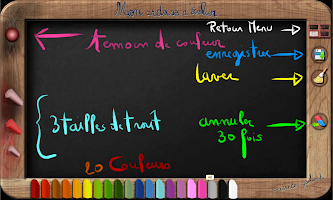 Mon ardoise à colier
Retour Menu
temoin de couleur
enregistrer
laver
3 tailles de trait
annuler
30 fois
20 Couleurs